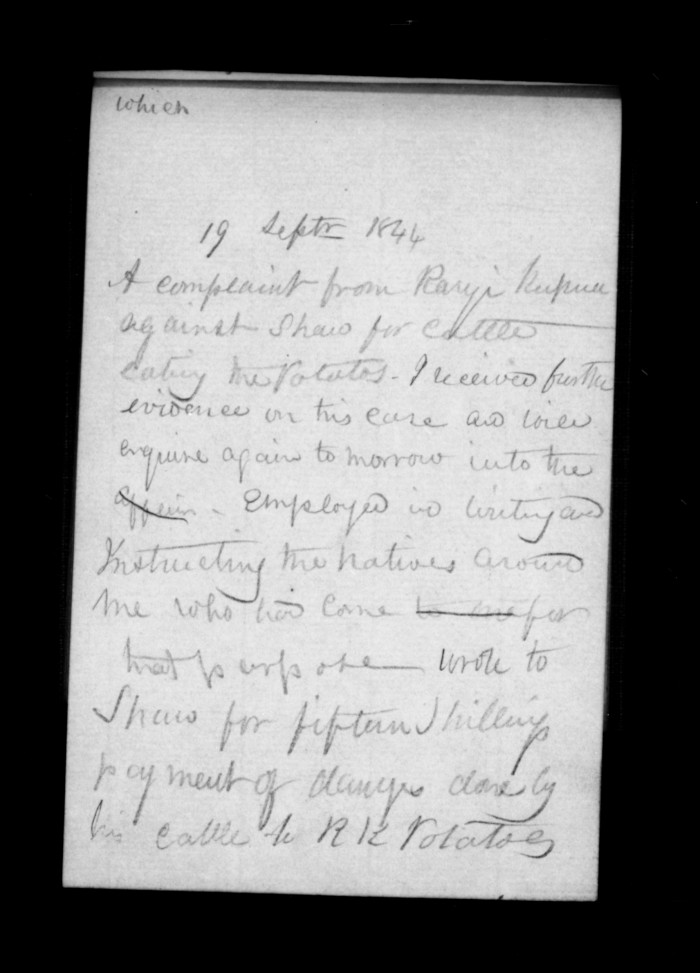 which
19 Septr 1844
A complaint from Rangi Kupua
against Shaw for cattle
eating the Potatos - I received further
evidence on this case and will
enquire again tomorrow into the
affair - Employed in writing and
Instructing the natives around
me who had come to me for
that purpose - wrote to
Shaw for fifteen Shillings
payment of damages done by
his cattle to R K Potatoes